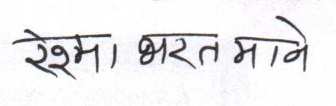 रेश्मा भरत माने